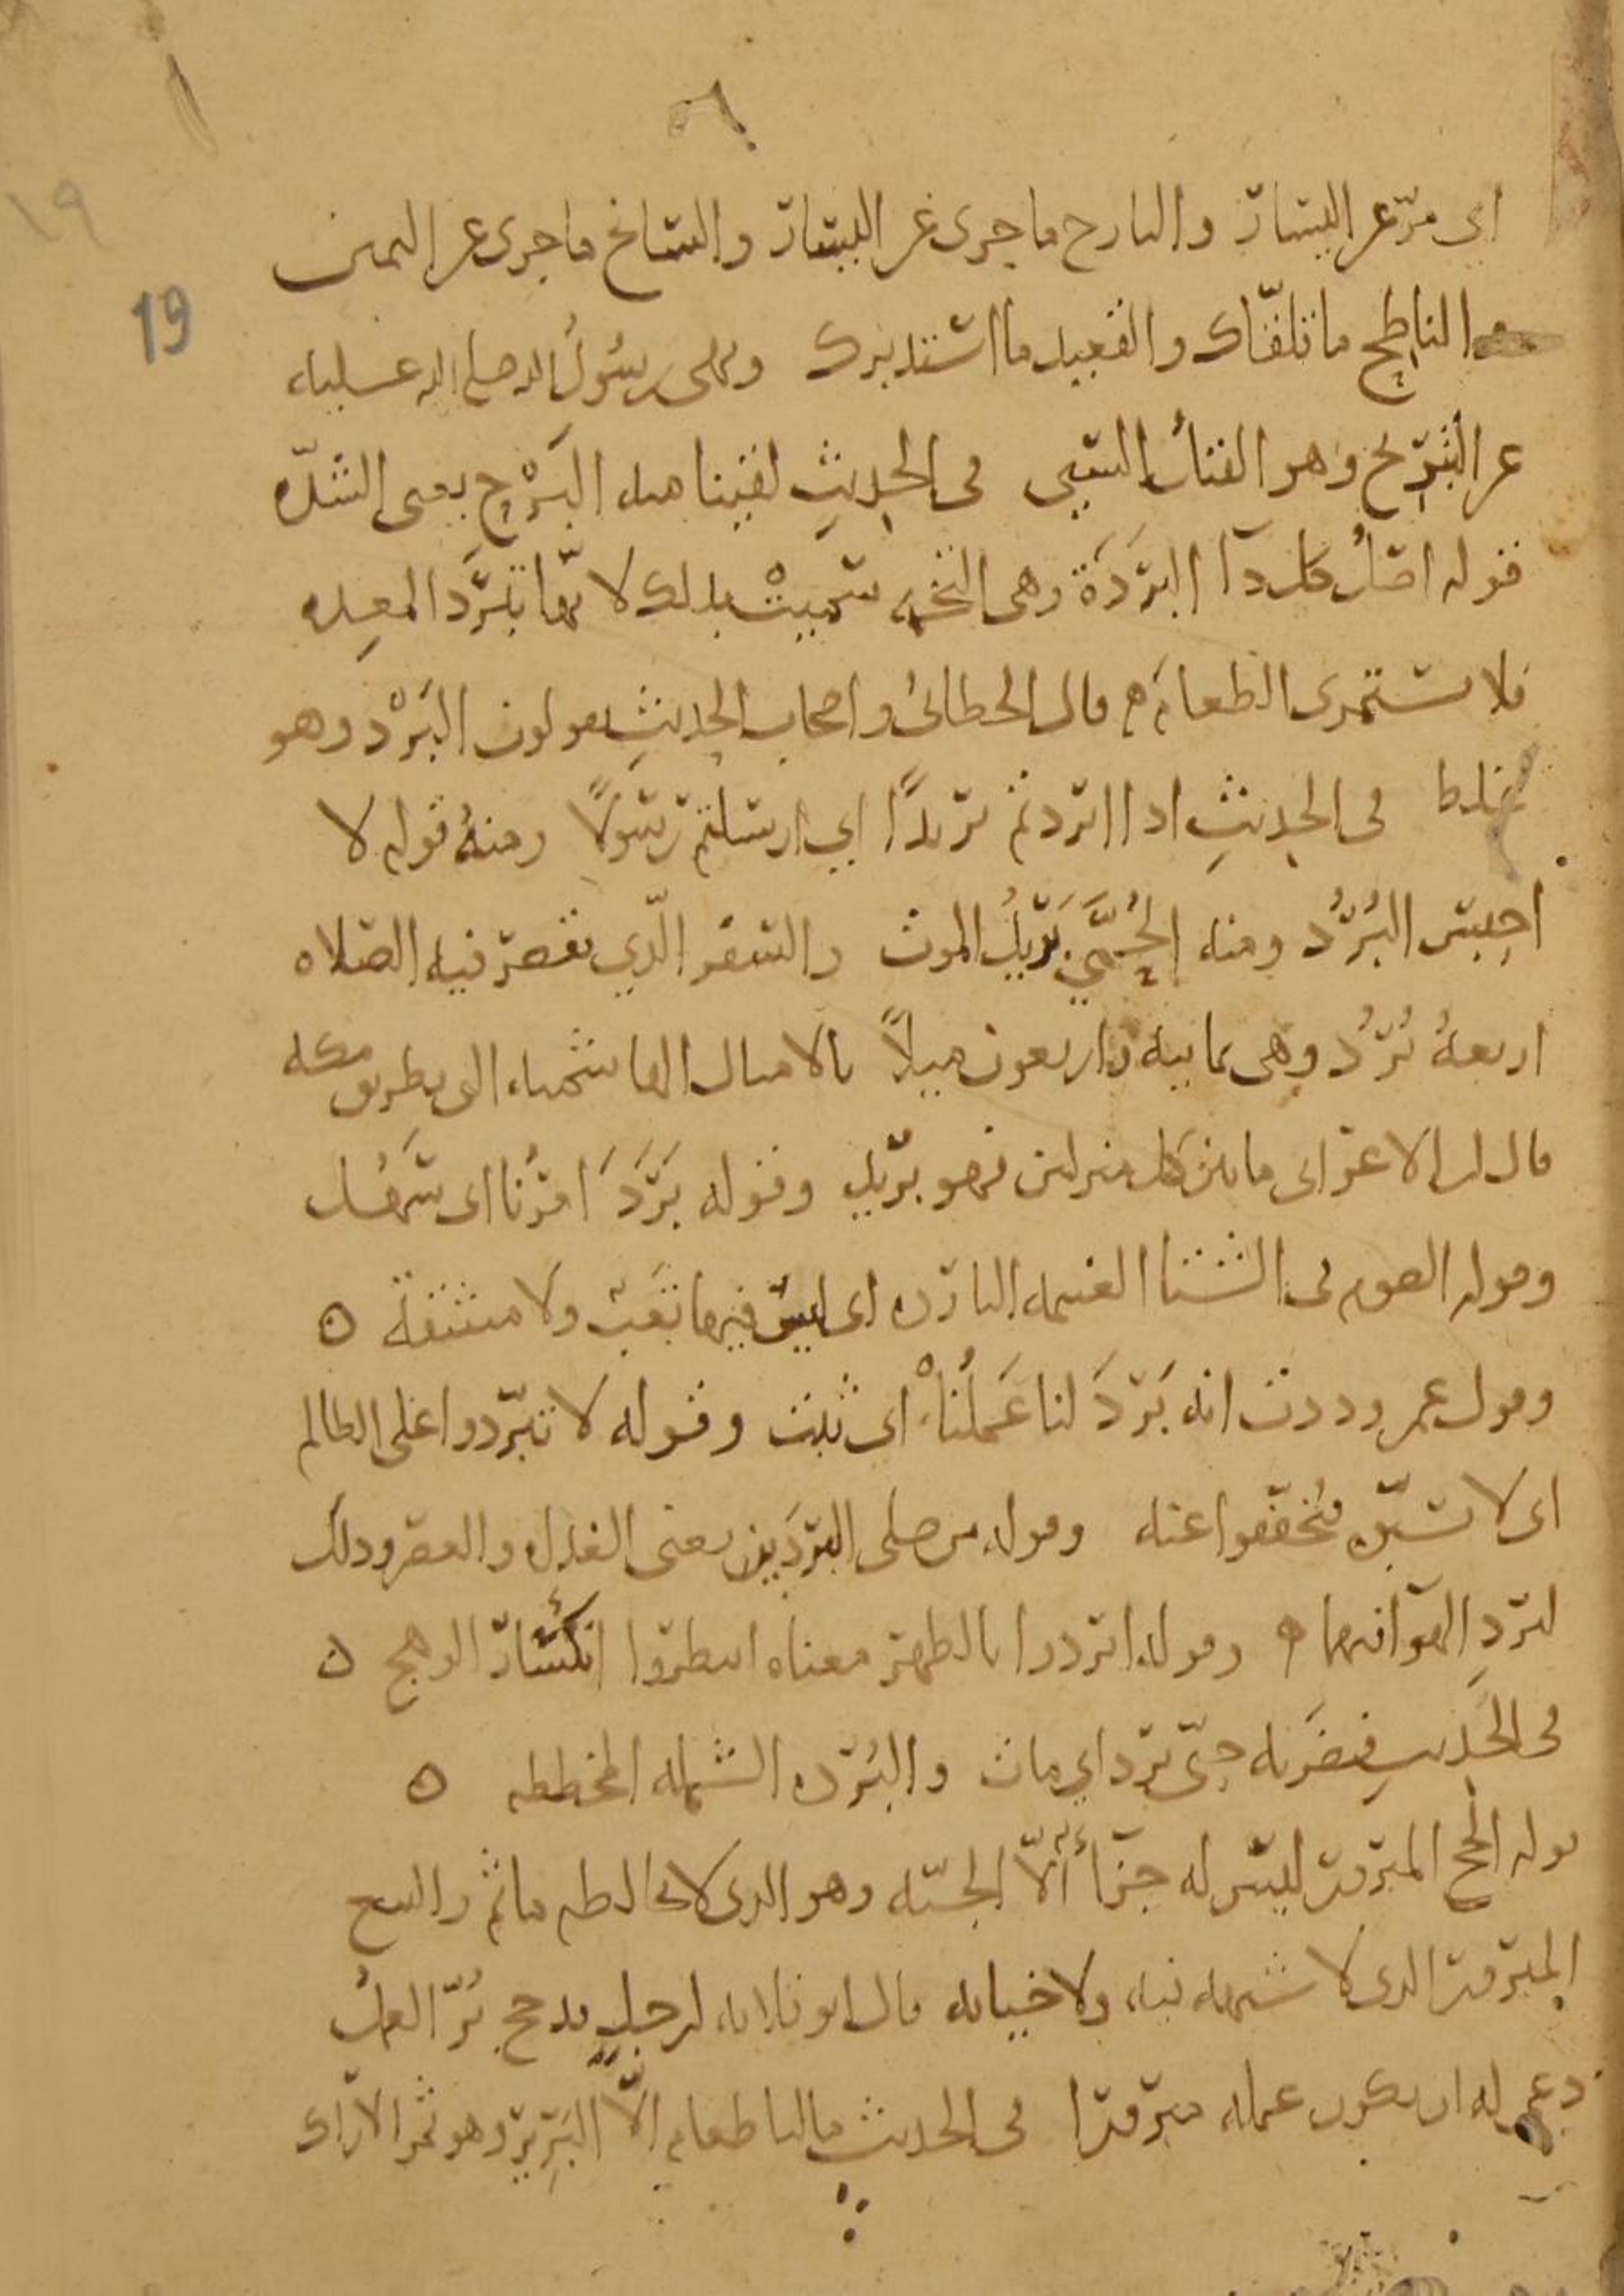 ١٩
19
اى مرّ عن اليسار والبارح ما جرى عن اليسار والسانح ما جرى عن اليمين
والناطح ما تلقّاك والقعيد ما استدبرك ونهى رسولُ الله صلى الله عليه
عن التبريح وهو القتلُ السّيّى فى الحديثِ لقينا منه البَرْح بمعى الشدّه
قوله اصلُ كل دآ البَرَدَة وهى التخمه سُمّيتْ بذلك لانّها تبرِّد المعده
فلا تستمرى الطعام ه قال الخطابى واصحاب الحديثِ يقولون البَرْد وهو
غلط فى الحديثِ اذا ابردتم بريدًا اي ارسلتم رسولاً ومنهُ قوله لا
احبِس البُرُد ومنه الحُمَّي بَرِيدُ الموت والسفر الّذي تقصر فيه الصلاه
اربعهُ بُرُد وهى ثمانيه واربعون ميلاً بالاميال الهاشميه التى بطريق مكه
قال ابن الاعرابى ما بين كل منزلين فهو بريد وقوله بَرَدَ امرُنا اى سَهُل
وقوله الصوم فى الشتا الغنيمه البارده اى ليس فيها تَعَب ولا مشقة ه
وقول عمر وددت انه بَرَدَ لنا عَمَلُنا اى ثبت وقوله لا تبرّدوا على الظالم
اى لا تسبّوه فتُخفّفوا عنه وقوله من صلى البردَين يعنى الغداه والعصر وذلك
لبردِ الهوآ فيهما ه وقوله ابردوا بالظهر معناه انتظروا انكسارَ الوهج ه
فى الحَديثِ فضرَبه حتّى برد اي مات والبُرده الشمله المخططه ه
قوله الحج المبرور ليس له جزآءٌ الاّ الجنّه وهو الذى لا يخالطه ماثم والبيع
المبرور الذى لا شبهه فيه ولا خيانه قال ابو قلابه لرجلٍ قدم من حج بُرّ العملُ
دعى له ان يكون عمله مبرورا فى الحديث ما لنا طعام الاّ البَرِير وهو ثمر الاراك